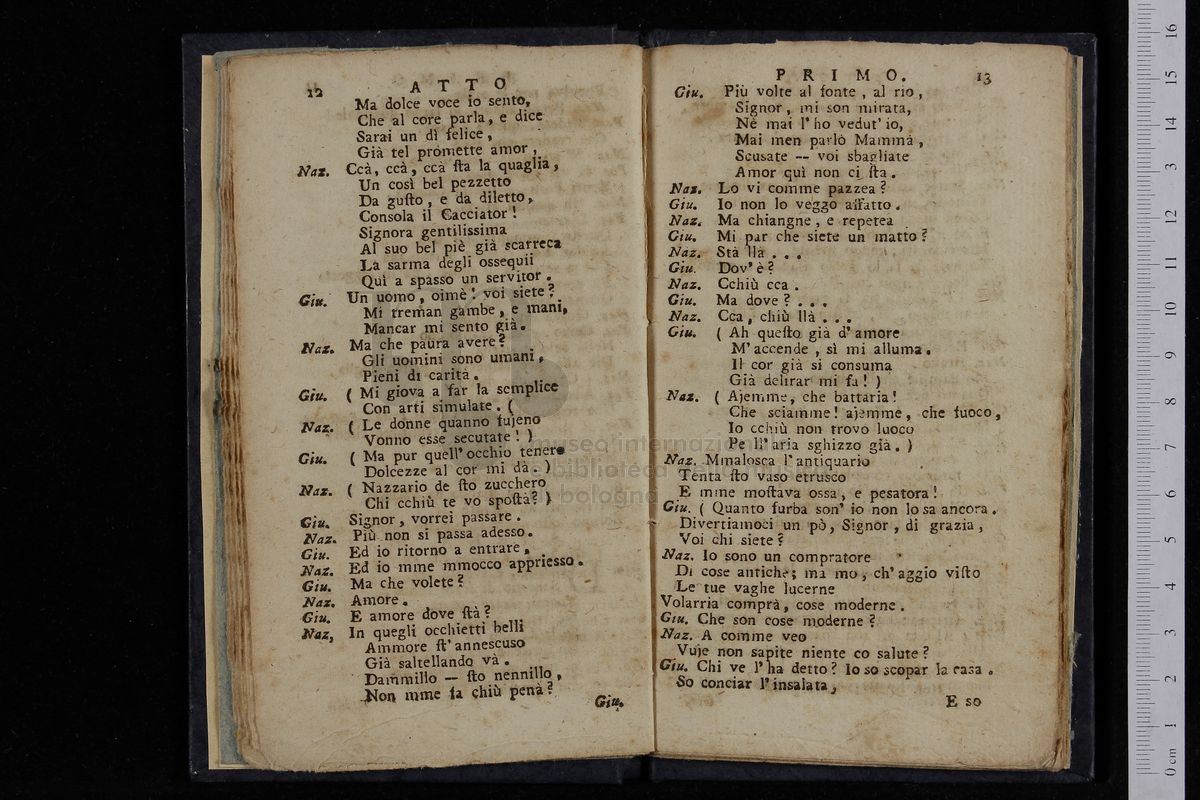 12
A T T O
Ma dolce voce io sento,
Che al core parla, e dice
Sarai un dì felice,
Già tel promette amor,
Naz. Ccà, ccà, ccà ſta la quaglia,
Un così bel pezzetto
Da guſto, e da diletto,
Consola il Cacciator!
Signora gentilissima
Al suo bel piè già scarreca
La sarma degli ossequii
Quì a spasso un servitor.
Giu. Un uomo, oimè! voi siete?
Mi treman gambe, e mani,
Mancar mi sento già.
Naz. Ma che paura avere?
Gli uomini sono umani,
Pieni di carità.
Giu. ( Mi giova a far la semplice
Con arti simulate. (
Naz. ( Le donne quanno fujeno
Vonno esse secutate! )
Giu. ( Ma pur quell' occhio tenere
Dolcezze al cor mi dà. )
Naz. ( Nazzario de ſto zucchero
Chi cchiù te vo spoſtà? )
Giu. Signor, vorrei passare.
Naz. Più non si passa adesso.
Giu. Ed io ritorno a entrare,
Naz. Ed io mme mmocco appriesso.
Giu. Ma che volete?
Naz. Amore.
Giu. E amore dove ſtà?
Naz, In quegli occhietti belli
Ammore ſt' annescuso
Già saltellando và.
Dammillo — ſto nennillo,
Non mme fa chiù penà?
Giu.
P R I M O.
13
Giu. Più volte al fonte, al rio,
Signor, mi son mirata,
Nè mai l' ho vedut' io,
Mai men parlò Mamma,
Scusate — voi sbagliate
Amor quì non ci ſta.
Naz. Lo vi comme pazzea?
Giu. Io non lo veggo affatto.
Naz. Ma chiangne, e repetea
Giu. Mi par che siete un matto?
Naz. Stà llà . . .
Giu. Dov' è?
Naz. Cchiù cca.
Giu. Ma dove? . . .
Naz. Cca, chiù llà . . .
Giu. ( Ah queſto già d' amore
M' accende, sì mi alluma.
Il cor già si consuma
Già delirar mi fa! )
Naz. ( Ajemme, che battaria!
Che sciamme! ajemme, che fuoco,
Io cchiù non trovo luoco
Pe ll' aria sghizzo già. )
Naz. Mmalosca l' antiquario
Tenta ſto vaso etrusco
E mme moſtava ossa, e pesatora!
Giu. ( Quanto furba son' io non lo sa ancora.
Divertiamoci un pò, Signor, di grazia,
Voi chi siete?
Naz. Io sono un compratore
Di cose antiche; ma mo, ch' aggio viſto
Le tue vaghe lucerne
Volarria comprà, cose moderne.
Giu. Che son cose moderne?
Naz. A comme veo
Vuje non sapite niente co salute?
Giu. Chi ve l' ha detto? Io so scopar la casa.
So conciar l' insalata,
E so
museo internazionale
biblioteca della musica
bologna
0 cm 1 2 3 4 5 6 7 8 9 10 11 12 13 14 15 16